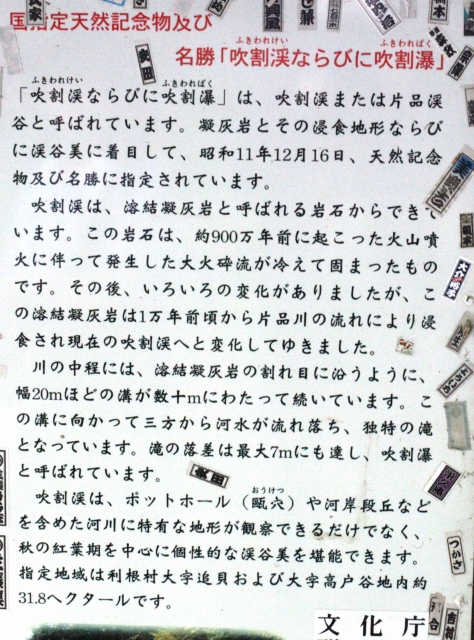 国指定天然記念物及び
名勝「吹割渓ならびに吹割瀑」
ふきわれけい ふきわればく
「吹割渓ならびに吹割瀑」は、吹割渓または片品渓
ふきわれけい ふきわればく
谷と呼ばれています。凝灰岩とその浸食地形ならび
に渓谷美に着目して、昭和11年12月16日、天然記念
物及び名勝に指定されています。
吹割渓は、溶結凝灰岩と呼ばれる岩石からできて
います。この岩石は、約900万年前に起こった火山噴
火に伴って発生した大火砕流が冷えて固まったもの
です。その後、いろいろの変化がありましたが、こ
の溶結凝灰岩は1万年前頃から片品川の流れにより浸
食され現在の吹割渓へと変化してゆきました。
川の中程には、溶結凝灰岩の割れ目に沿うように、
幅20mほどの溝が数十mにわたって続いています。こ
の溝に向かって三方から河水が流れ落ち、独特の滝
となっています。滝の落差は最大7mにも達し、吹割瀑
と呼ばれています。
吹割渓は、ポットホール（甌穴）や河岸段丘など
おうけつ
を含めた河川に特有な地形が観察できるだけでなく、
秋の紅葉期を中心に個性的な渓谷美を堪能できます。
指定地域は利根村大字追貝および大字高戸谷地内約
31.8ヘクタールです。
文化庁
つかさ